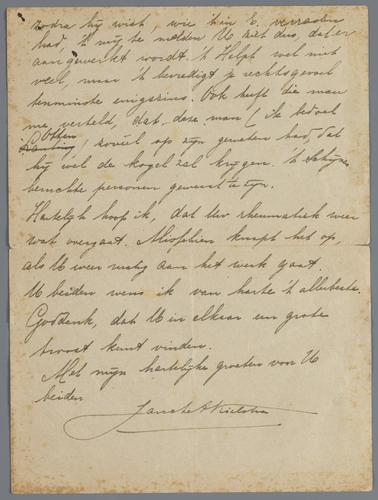 zodra hij wist, wie 't in E. verraden
had, 't mij te melden. U ziet dus, dat er
aan gewerkt wordt. 't Helpt wel niet
veel, maar 't bevredigt je rechtsgevoel
tenminste enigszins. Ook heeft die man
me verteld, dat deze man (ik bedoel
Otten) zoveel op zijn geweten had, dat
hij wel de kogel zal krijgen. 't
beruchte personen geweest te zijn.
Hartelijk hoop ik, dat Uw rheumatiek weer
wat overgaat. Misschien knapt het op,
als U weer rustig aan het werk gaat.
U beiden wens ik van harte 't allerbeste.
Goddank, dat U in elkaar een grote
troost kunt vinden.
Met mijn hartelijke groeten voor U
beiden